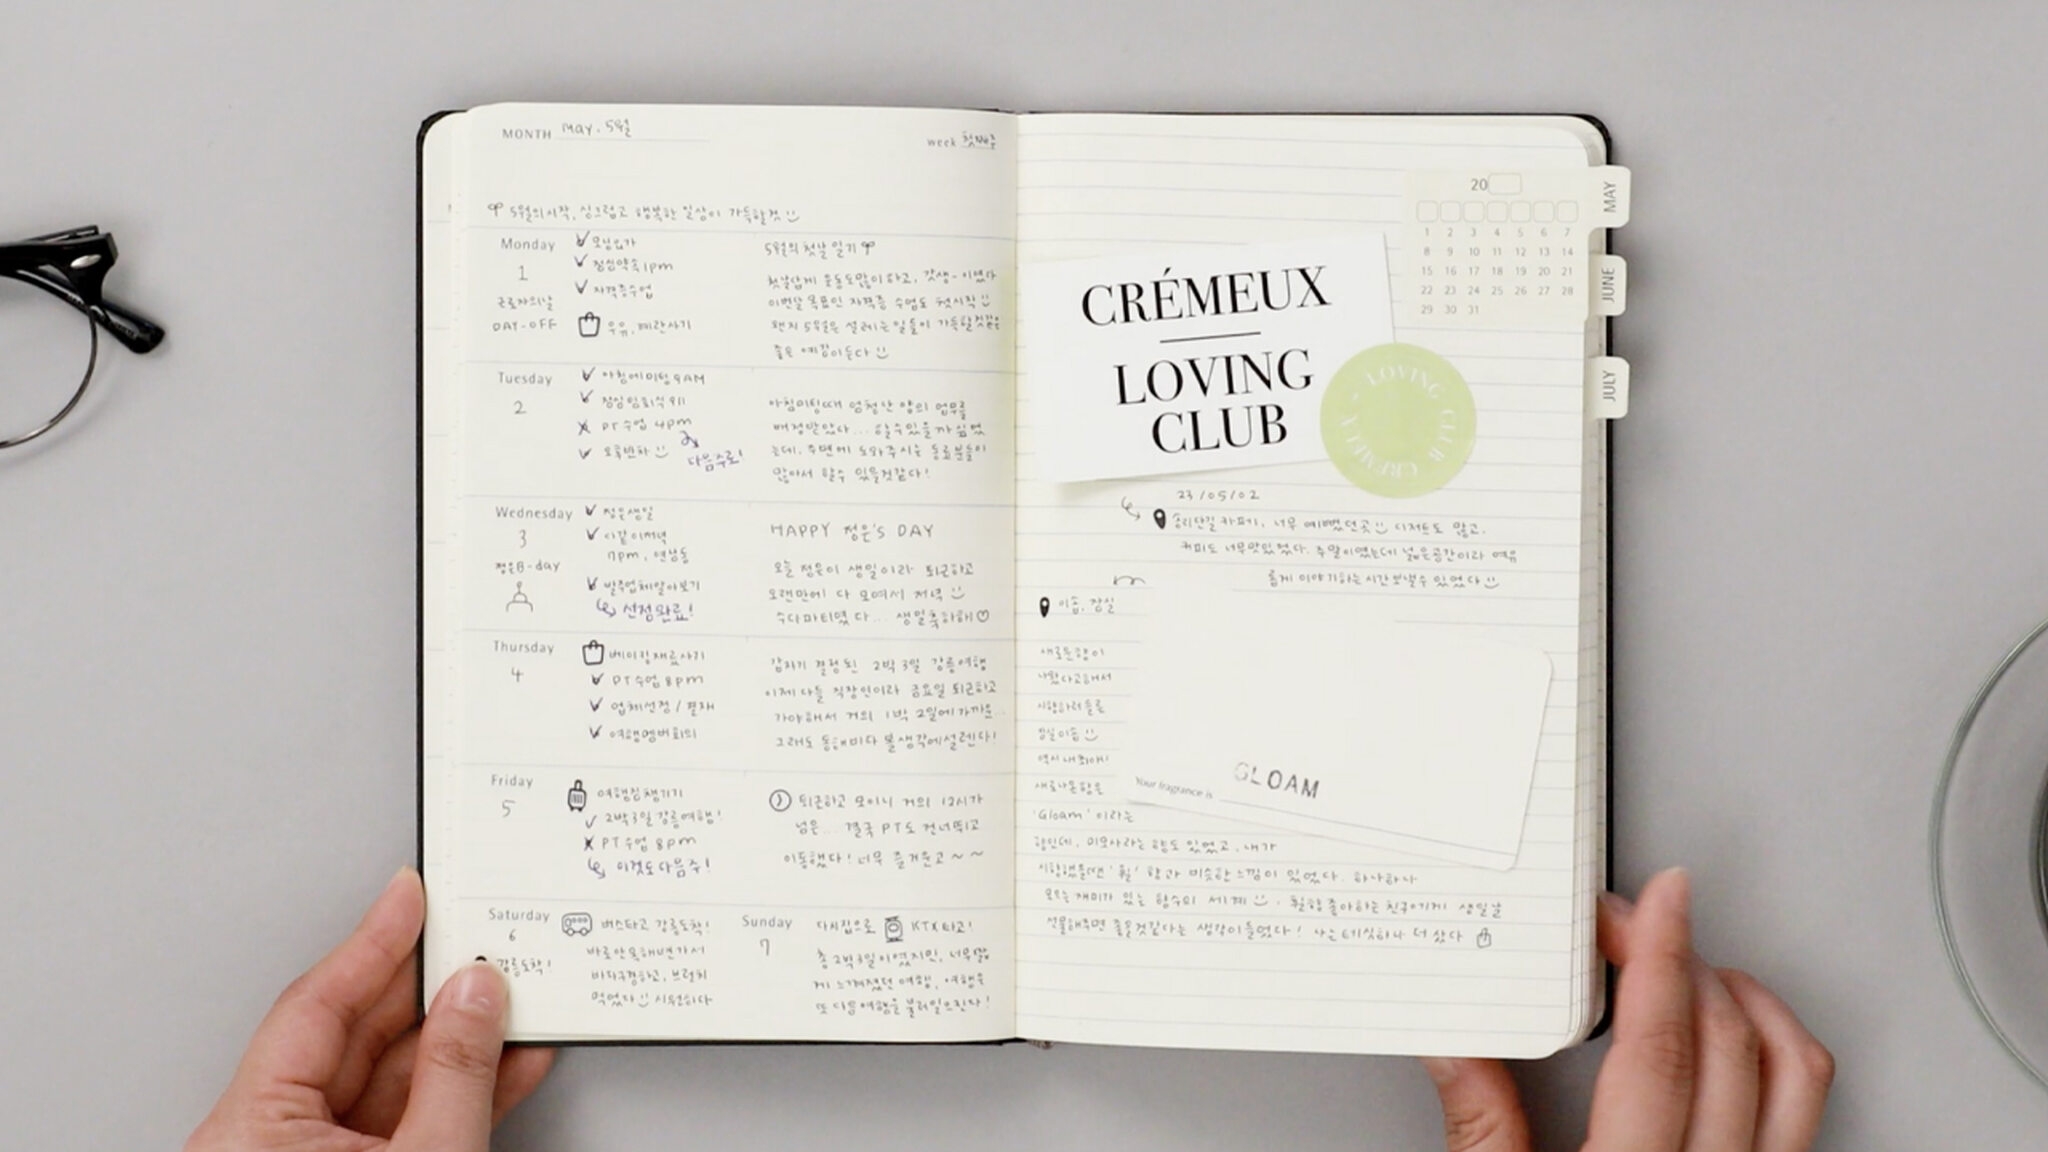 MONTH May. 5월
week 첫째주
5월의 시작, 싱그럽고 행복한 일상이 가득할것
Monday
1
근로자의날
DAY-OFF
모닝요가
점심약속 1pm
자격증수업
우유, 계란사기
5월의 첫날 일기
첫날답게 운동도많이 하고, 갓생- 이였다
이번달 목표인 자격증 수업도 첫시작
왠지 5월은 설레는일들이 가득할것같은
좋은 예감이든다
Tuesday
2
아침에미팅 9AM
점심임회식 911
PT수업 4pm
다음주로!
오후반차
아침미팅때 엄청난 양의 업무를
배정받았다... 할수있을까 싶었
는데, 주변에 도와주시는 동료분들이
많아서 할수 있을것같다!
Wednesday
3
정은B-day
정은생일
다같이저녁
7pm, 연남동
발주업체알아보기
선정완료!
HAPPY 정은's DAY
오늘 정은이 생일이라 퇴근하고
오랜만에 다 모여서 저녁
수다파티했다... 생일축하해♡
Thursday
4
베이킹재료사기
PT수업 8pm
업체선정 / 결재
여행멤버회의
갑자기 결정된 2박 3일 강릉여행
이제 다들 직장인이라 금요일 퇴근하고
가야해서 거의 1박 2일에 가까운...
그래도 동해바다 볼생각에설렌다!
Friday
5
여행짐챙기기
2박3일강릉여행!
PT수업 8pm
이것도다음주!
퇴근하고 모이니 거의 12시가
넘은... 결국 PT도 건너뛰고
이동했다! 너무 즐거운고~~
Saturday
6
강릉도착!
버스타고 강릉도착!
바로안목해변가서
바다구경하고, 브런치
먹었다 시원하다
Sunday
7
다시집으로 KTX타고!
총 2박3일이였지만, 너무짧
게 느껴졌던 여행, 여행은
또 다음여행을 불러일으킨다!
20
1 2 3 4 5 6 7
8 9 10 11 12 13 14
15 16 17 18 19 20 21
22 23 24 25 26 27 28
29 30 31
MAY
JUNE
JULY
CRÉMEUX
LOVING
CLUB
LOVING CLUB CREMEUX
23/05/02
송리단길 카페, 너무 예뻤던곳 디저트도 많고,
커피도 너무맛있었다. 주말이였는데 넓은공간이라 여유
롭게 이야기하는시간보낼수 있었다
이솝, 잠실
새로운향이
나왔다고해서
시향하러들른
잠실이솝
역시 내최애!
새로나온향은
'Gloam' 이라는
향인데, 미모사라는 향도 있었고, 내가
시향했을땐 '휠' 향과 비슷한느낌이 있었다. 하나하나
모으는재미가 있는 향수의 세계. 휠향좋아하는 친구에게 생일날
선물해주면 좋을것같다는 생각이들었다! 나는
더 샀다
Your fragrance is GLOAM